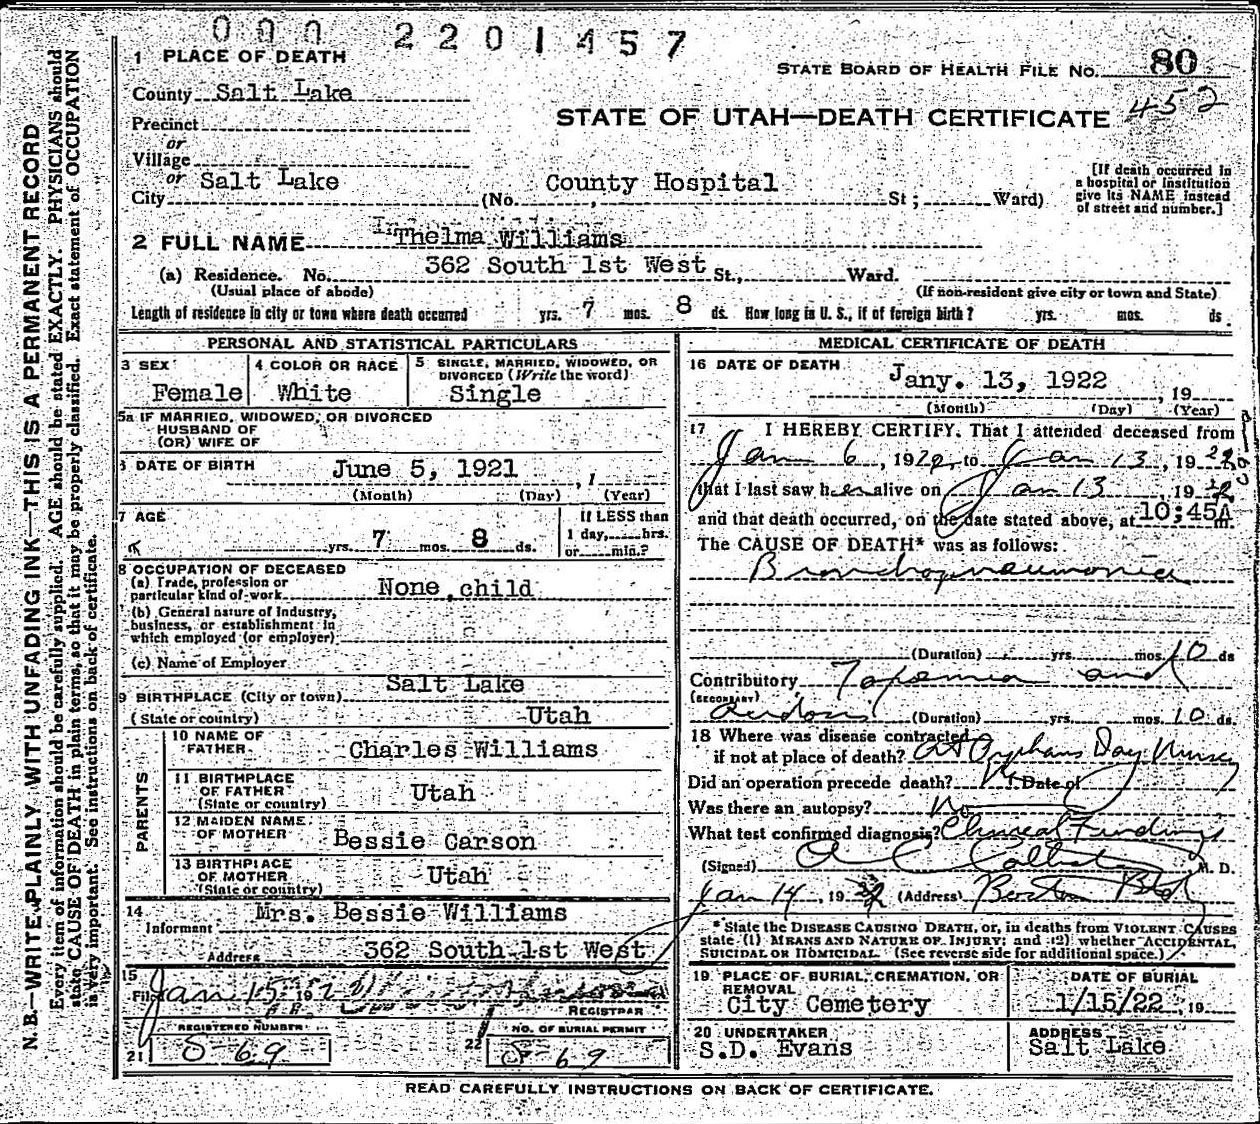 000 2201457
1 PLACE OF DEATH
STATE BOARD OF HEALTH FILE NO. 80
County Salt Lake
452
Precinct
STATE OF UTAH—DEATH CERTIFICATE
or
Village
or Salt Lake
City
(No. County Hospital St; Ward)
[If death occurred in
a hospital or institution
give its NAME instead
of street and number.]
2 FULL NAME Thelma Williams
(a) Residence. No. 362 South 1st West St., Ward.
(Usual place of abode)
(If non-resident give city or town and State)
Length of residence in city or town where death occurred yrs. 7 mos. 8 ds. How long in U. S., if of foreign birth? yrs. mos. ds.
PERSONAL AND STATISTICAL PARTICULARS
3 SEX
Female
4 COLOR OR RACE
White
5 SINGLE, MARRIED, WIDOWED, OR
DIVORCED (Write the word)
Single
5a IF MARRIED, WIDOWED, OR DIVORCED
HUSBAND OF
(OR) WIFE OF
6 DATE OF BIRTH June 5, 1921
(Month) (Day) (Year)
7 AGE
yrs. 7 mos. 8 ds.
If LESS than
1 day, hrs.
or min.?
8 OCCUPATION OF DECEASED
(a) Trade, profession or
particular kind of work None, child
(b) General nature of Industry,
business, or establishment in
which employed (or employer)
(c) Name of Employer
9 BIRTHPLACE (City or town) Salt Lake
(State or country) Utah
PARENTS
10 NAME OF
FATHER Charles Williams
11 BIRTHPLACE
OF FATHER
(State or country) Utah
12 MAIDEN NAME
OF MOTHER Bessie Carson
13 BIRTHPLACE
OF MOTHER
(State or country) Utah
14
Informant Mrs. Bessie Williams
Address 362 South 1st West
15
Filed Jan 15 19
REGISTRAR
REGISTERED NUMBER
21 S-69
NO. OF BURIAL PERMIT
22 S-69
MEDICAL CERTIFICATE OF DEATH
16 DATE OF DEATH Jany. 13, 1922
, 19
(Month) (Day) (Year)
17 I HEREBY CERTIFY, That I attended deceased from
Jan 6, 1922, to Jan 13, 1922
that I last saw her alive on Jan 13 1922
and that death occurred, on the date stated above, at 10:45A m.
The CAUSE OF DEATH* was as follows:
Bronchopneumonia
(Duration) yrs. mos. 10 ds
Contributory Toxemia and
(SECONDARY) Acidosis (Duration) yrs. mos. 10 ds.
18 Where was disease contracted
if not at place of death? At Orphans Day Nursey
Did an operation precede death? Date of
Was there an autopsy? No
What test confirmed diagnosis? Clinical Findings
(Signed) A C Callister M. D.
Jan 14, 1922 (Address) Boston Bld
* State the DISEASE CAUSING DEATH, or, in deaths from VIOLENT CAUSES
state (1) MEANS AND NATURE OF INJURY; and (2) whether ACCIDENTAL,
SUICIDAL OR HOMICIDAL. (See reverse side for additional space.)
19 PLACE OF BURIAL, CREMATION, OR
REMOVAL
City Cemetery
DATE OF BURIAL
1/15/22, 19
20 UNDERTAKER
S.D. Evans
ADDRESS
Salt Lake
READ CAREFULLY INSTRUCTIONS ON BACK OF CERTIFICATE.
N. B.—WRITE PLAINLY WITH UNFADING INK—THIS IS A PERMANENT RECORD
Every item of information should be carefully supplied. AGE should be stated EXACTLY. PHYSICIANS should
state CAUSE OF DEATH in plain terms, so that it may be properly classified. Exact statement of OCCUPATION
is very important. See instructions on back of certificate.